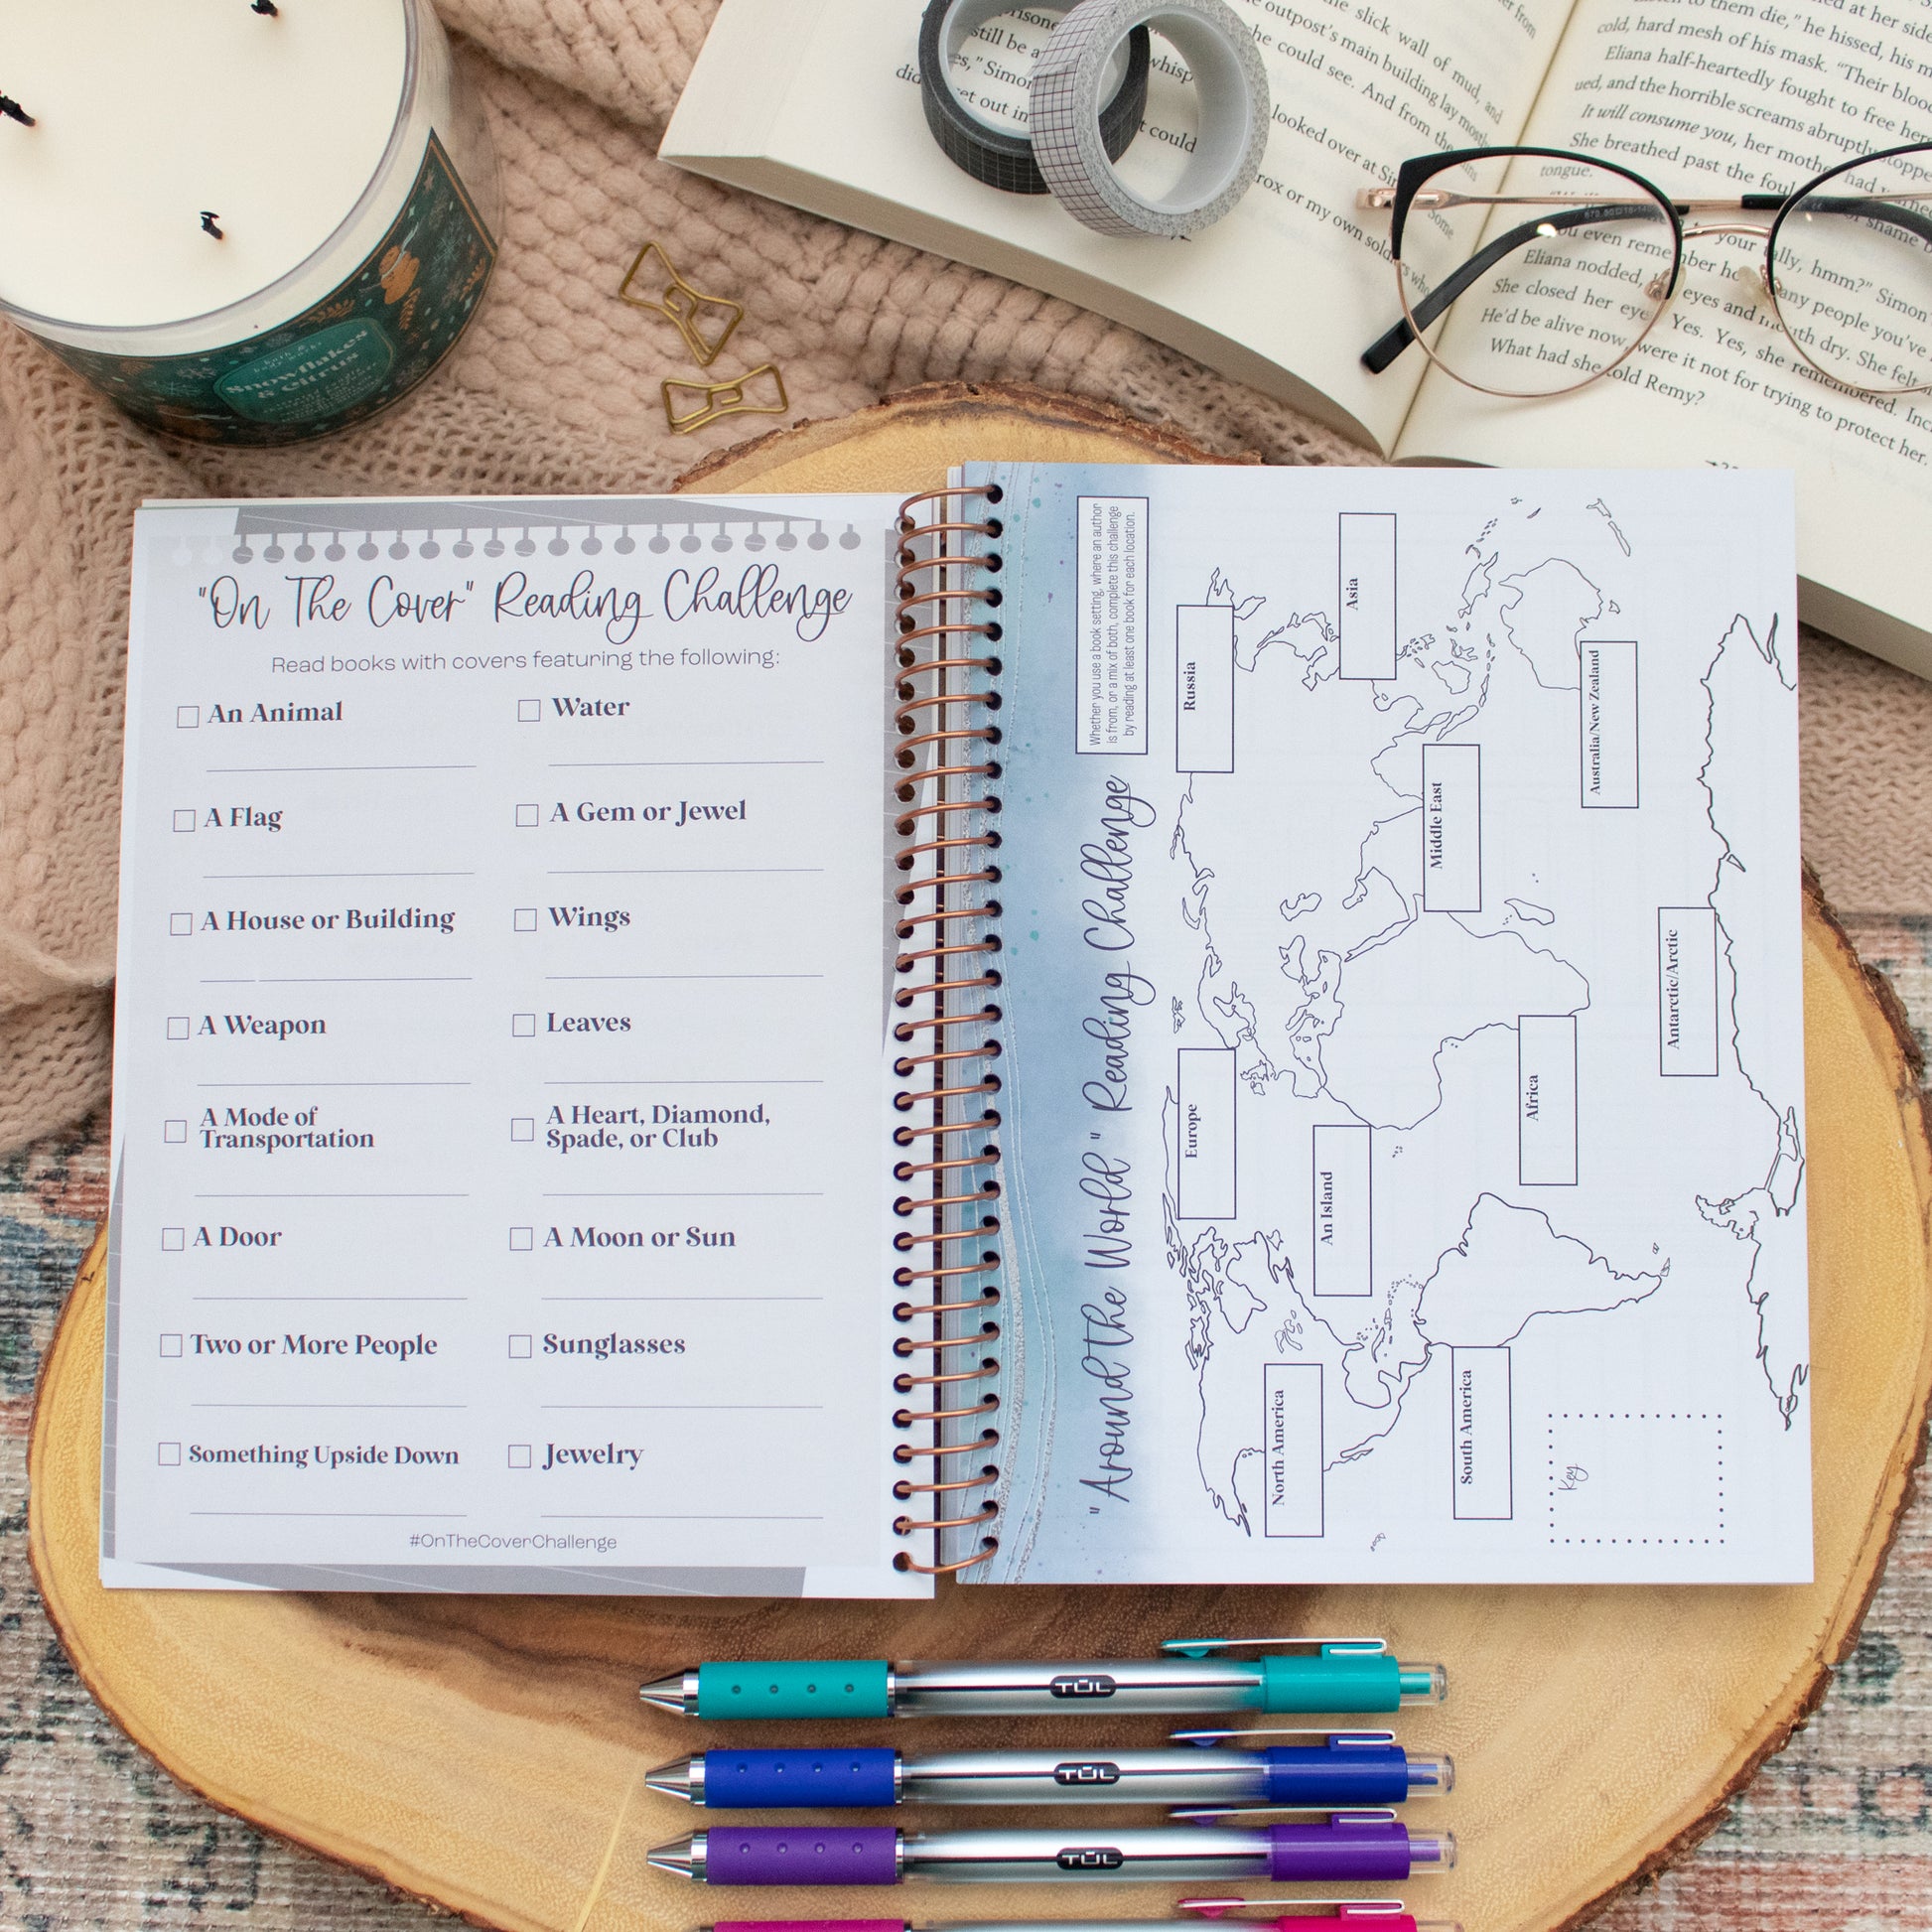 Snowflakes
& Citrus
the slick wall of mud, and
outpost's main building lay mostly
he could see. And from the
looked over at
still be a
whisp
es," Simon
t could
rox or my own
to them die," he hissed, his
cold, hard mesh of his mask. "Their blood
Eliana half-heartedly fought to free
ued, and the horrible screams abruptly
It will consume you, her
She breathed past the foul
tongue.
had
shame
ou even remember
your
ally, hmm?" Simon
Eliana nodded,
eyes and
any people you've
She closed her eye
Yes. Yes, she remembered.
th dry. She felt
He'd be alive now, were it not for trying to protect her.
What had she told Remy?
"On The Cover" Reading Challenge
Read books with covers featuring the following:
An Animal
Water
A Flag
A Gem or Jewel
A House or Building
Wings
A Weapon
Leaves
A Mode of
Transportation
A Heart, Diamond,
Spade, or Club
A Door
A Moon or Sun
Two or More People
Sunglasses
Something Upside Down
Jewelry
#OnTheCoverChallenge
"Around the World" Reading Challenge
Whether you use a book setting, where an author
is from, or a mix of both, complete this challenge
by reading at least one book for each location.
North America
Europe
Russia
An Island
Asia
South America
Middle East
Africa
Australia/New Zealand
Key
Antarctic/Arctic
TUL
TUL
TUL